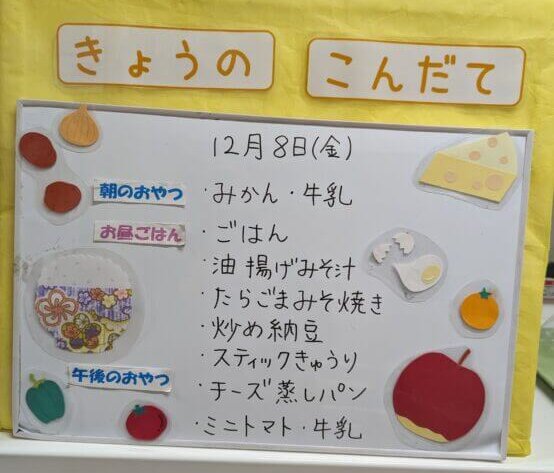 きょうの こんだて
12月8日(金)
朝のおやつ ・みかん・牛乳
お昼ごはん ・ごはん
・油揚げみそ汁
・たらごまみそ焼き
・炒め納豆
・スティックきゅうり
午後のおやつ ・チーズ蒸しパン
・ミニトマト・牛乳